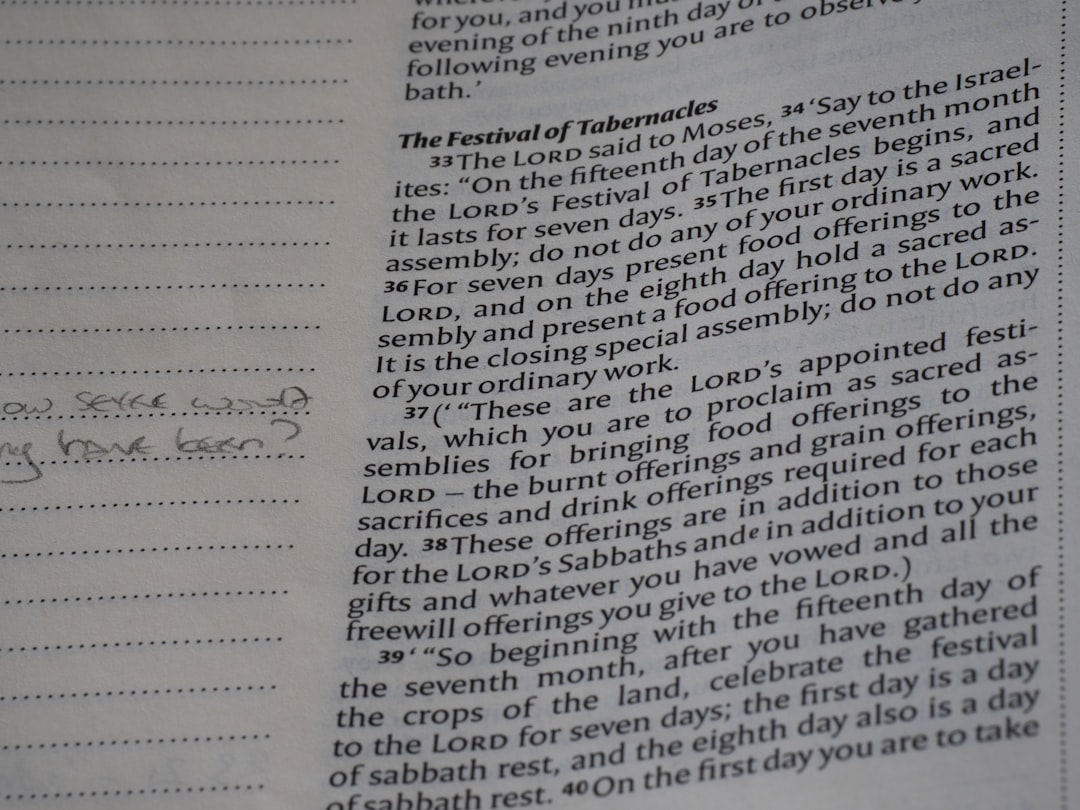 for you, and you
evening of the ninth day of
following evening you are to observe
bath.’
The Festival of Tabernacles
33 The LORD said to Moses, 34 ‘Say to the Israel-
ites: “On the fifteenth day of the seventh month
the LORD’s Festival of Tabernacles begins, and
it lasts for seven days. 35 The first day is a sacred
assembly; do not do any of your ordinary work.
36 For seven days present food offerings to the
LORD, and on the eighth day hold a sacred as-
sembly and present a food offering to the LORD.
It is the closing special assembly; do not do any
of your ordinary work.
37 (‘ “These are the LORD’s appointed festi-
vals, which you are to proclaim as sacred as-
semblies for bringing food offerings to the
LORD – the burnt offerings and grain offerings,
sacrifices and drink offerings required for each
day. 38 These offerings are in addition to those
for the LORD’s Sabbaths and e in addition to your
gifts and whatever you have vowed and all the
freewill offerings you give to the LORD.)
39 ‘ “So beginning with the fifteenth day of
the seventh month, after you have gathered
the crops of the land, celebrate the festival
to the LORD for seven days; the first day is a day
of sabbath rest, and the eighth day also is a day
of sabbath rest. 40 On the first day you are to take
have been?